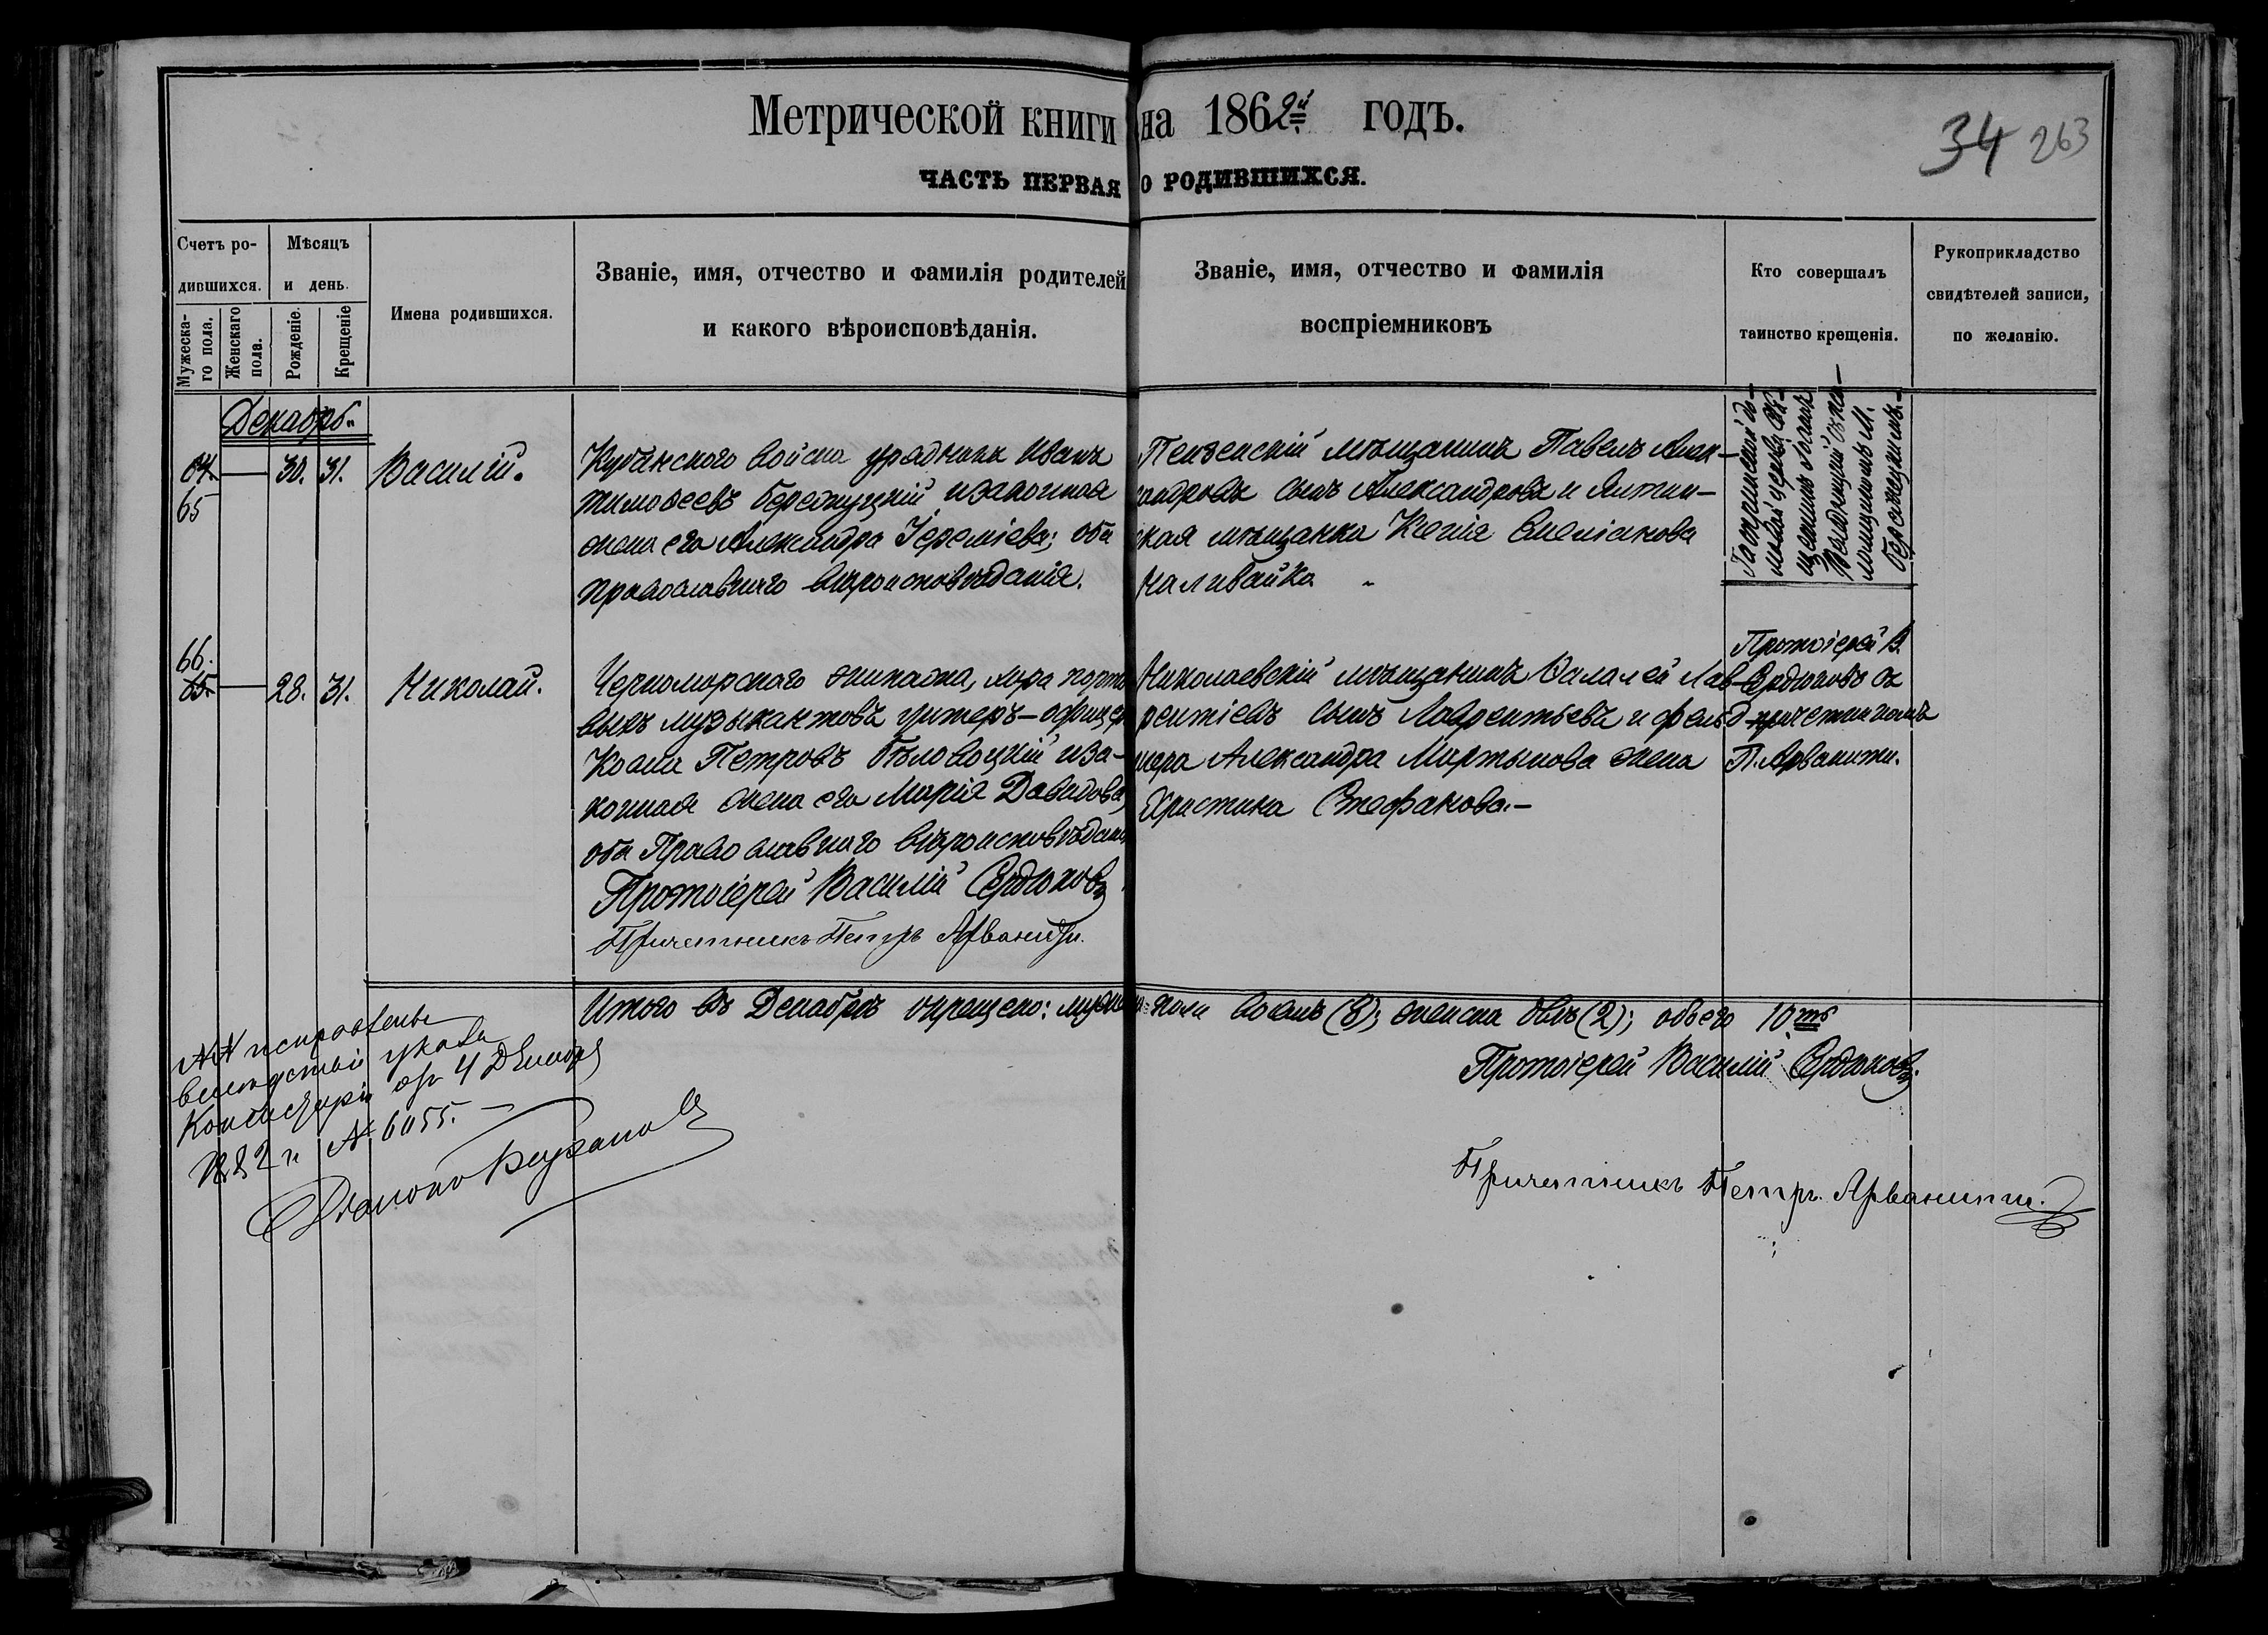 Метрической книги на 1862й годъ.
34 263
ЧАСТЬ ПЕРВАЯ О РОДИВШИХСЯ.
Счетъ ро-
дившихся.
Мужеска-
го пола.
Женскаго
пола.
Мѣсяцъ
и день.
Рожденіе.
Крещеніе
Имена родившихся.
Званіе, имя, отчество и фамилія родителей
и какого вѣроисповѣданія.
Званіе, имя, отчество и фамилія
воспріемниковъ
Кто совершалъ
таинство крещенія.
Рукоприкладство
свидѣтелей записи,
по желанію.
Декабрь.
64.
65
30. 31.
Василій.
Кубанского войска урядникъ Иванъ
Тимофеевъ Бережуцкій и законная
жена его Александра Іереміева; оба
православнаго вѣроисповѣданія.
Пензенскій мѣщанинъ Павелъ Алек-
сандровъ сынъ Александровъ и Ялтин-
ская мѣщанка Ксенія Емеліанова
Наливайка
66.
65.
28. 31.
Николай.
Черноморского экипажа, хора порто
выхъ музыкантовъ унтеръ-офицеръ
Косма Петровъ Бѣловоцкій и за-
конная жена его Марія Давидова,
оба Православнаго вѣроисповѣданія
Протоіерей Василій Сердюковъ
Причетникъ Петръ Арванити.
Николаевскій мѣщанинъ Валалей Лав-
рентіевъ сынъ Лаврентьевъ и фельд-
шера Александра Мартынова жена
Христина Стефанова.-
Протоіерей В.
Сердюковъ съ
причетникомъ
П. Арванити.
Итого въ Декабрѣ окрещено: мужеска: пола восемь (8); женска двѣ (2); обоего 10ть
Протоіерей Василій Сердюковъ.
Причетникъ Петръ Арванити.
№№ исправлены
вслѣдствіи указа
Консисторіи отъ 4 Декабря
1882 г. № 6055.-